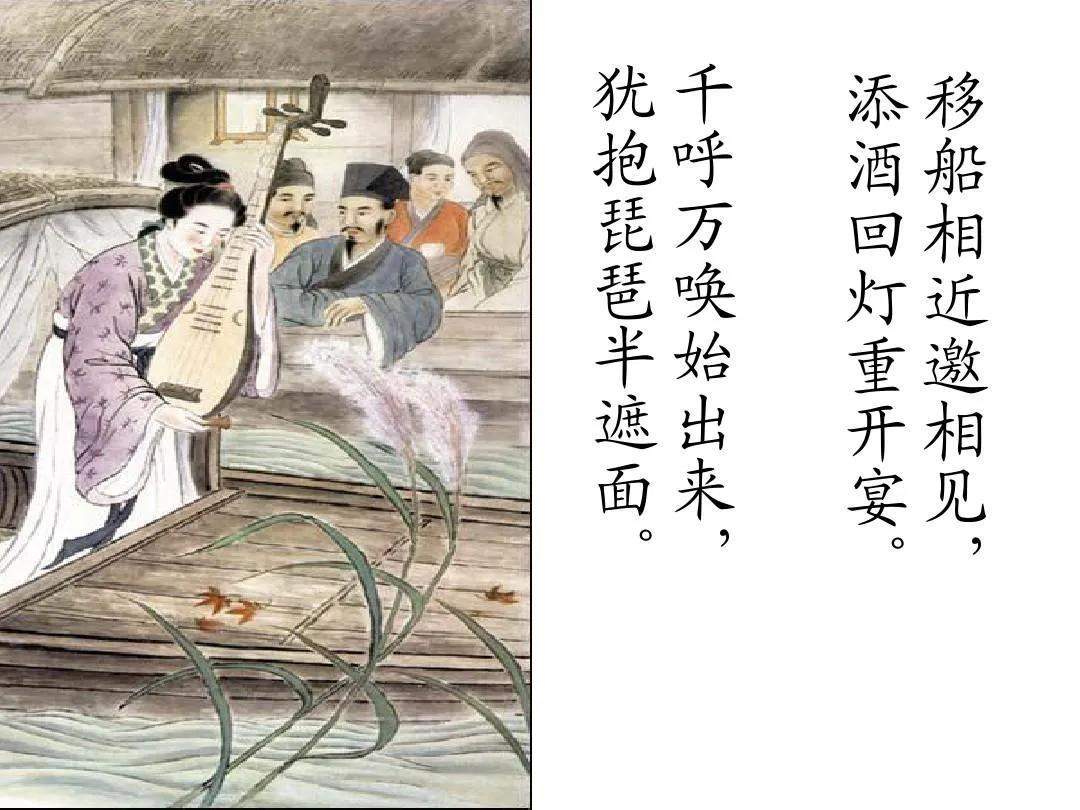 移船相近邀相见，
添酒回灯重开宴。
千呼万唤始出来，
犹抱琵琶半遮面。